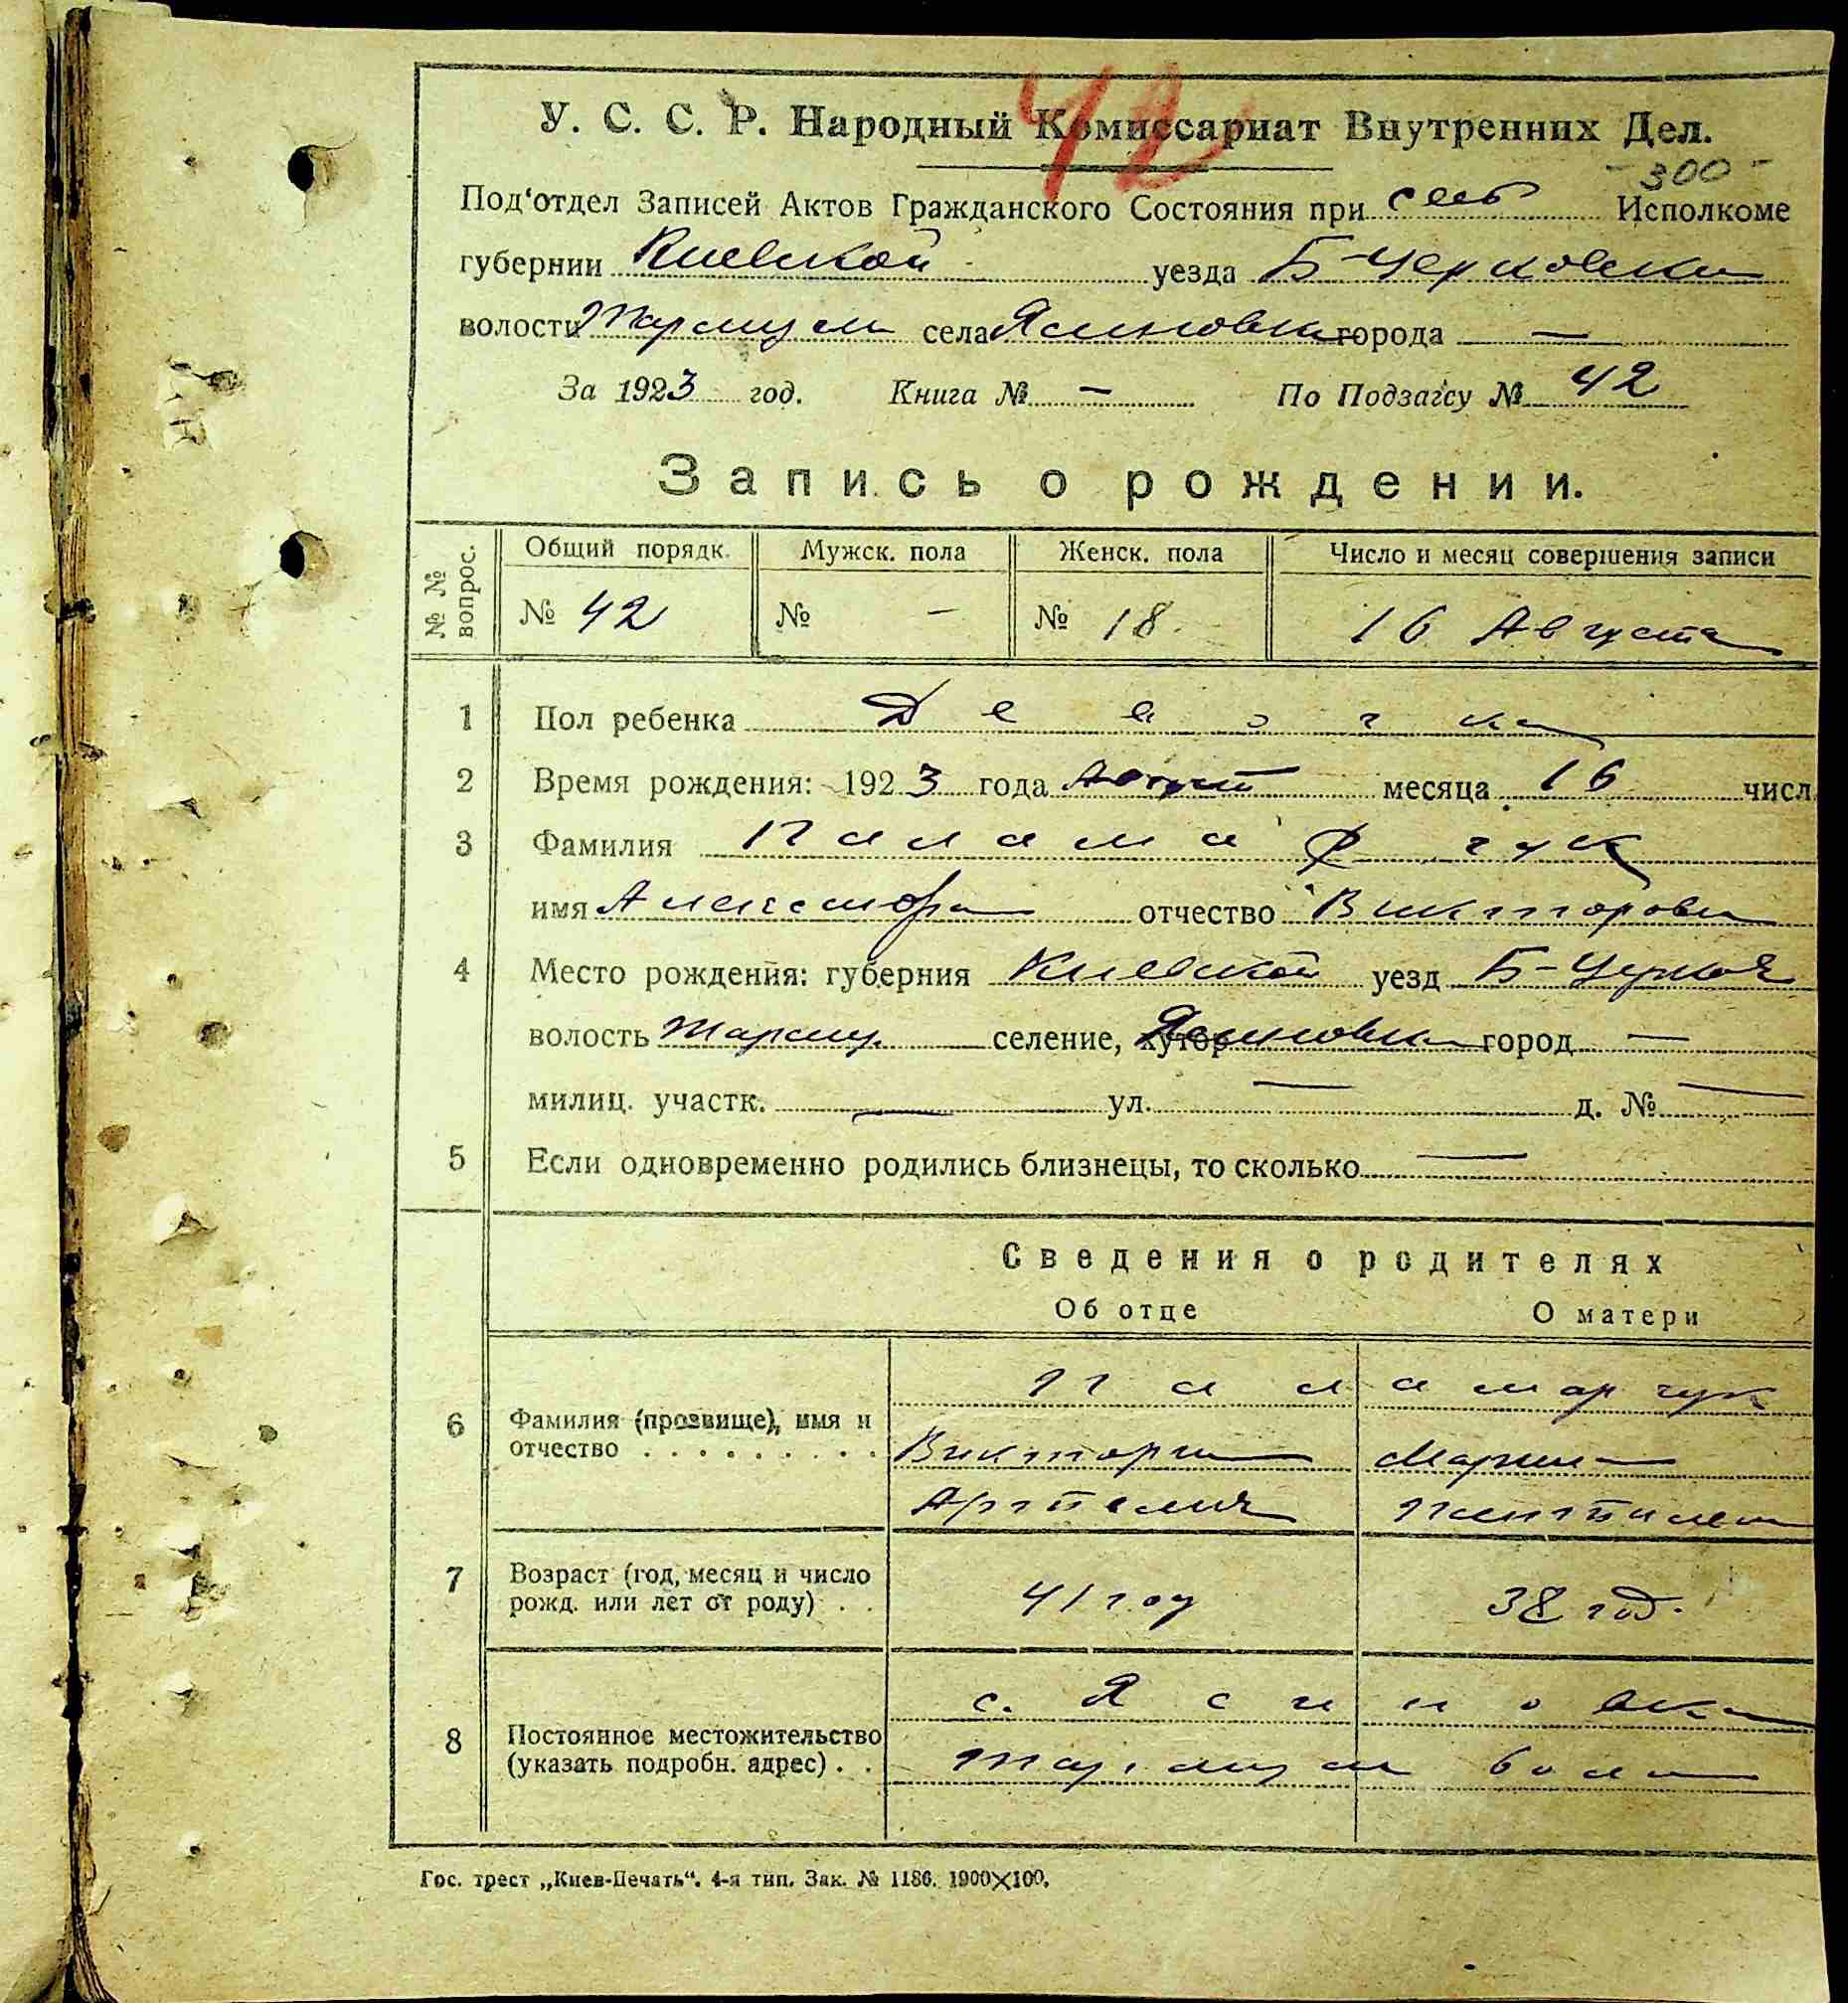 42
У. С. С. Р. Народный Комиссариат Внутренних Дел.
- 300 -
Под'отдел Записей Актов Гражданского Состояния при Исполкоме
губернии Киевской уезда Б-Церковски
волости села Ясиновка города —
За 1923 год. Книга № — По Подзагсу № 42
Запись о рождении.
№ № вопрос.
Общий порядк. Мужск. пола Женск. пола Число и месяц совершения записи
№ 42 № - № 18 16 Августа
1 Пол ребенка Девочка
2 Время рождения: 1923 года Август месяца 16 числ
3 Фамилия Паламарчук
имя Александра отчество Викторовн
4 Место рождения: губерния Киевской уезд Б-Церков
волость Таращ. селение, хутор Ясиновка город —
милиц. участк. — ул. — д. № —
5 Если одновременно родились близнецы, то сколько —
Сведения о родителях
Об отце О матери
Паламарчук
6 Фамилия (прозвище), имя и
отчество . . . . . . . . . Виктор Мария
7 Возраст (год, месяц и число
рожд. или лет от роду) . . 41 год 38 год.
с. Ясиновка
8 Постоянное местожительство
(указать подробн. адрес) . .
Гос. трест „Киев-Печать“. 4-я тип. Зак. № 1186. 1900×100.